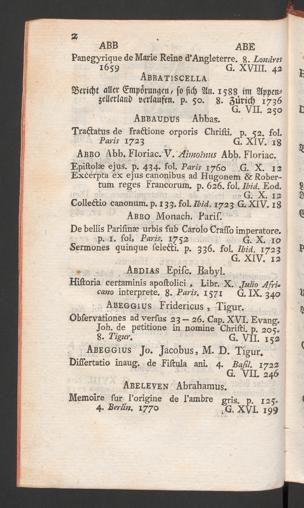 2
ABB ABE
Panegyrique de Marie Reine d'Angleterre. 8. Londres
1659 G. XVIII. 42
ABBATISCELLA
Bericht aller Empörungen, so sich An. 1588 im Appen-
zellerland verlaufen. p. 50. 8. Zürich 1736
G. VII. 250
ABBAUDUS Abbas.
Tractatus de fractione orporis Christi. p. 52. fol.
Paris 1723 G. XIV. 18
ABBO Abb. Floriac. V. Aimoinus Abb. Floriac.
Epistolæ ejus. p. 434. fol. Paris 1760 G. X. 12
Excerpta ex ejus canonibus ad Hugonem & Rober-
tum reges Francorum. p. 626. fol. Ibid. Eod.
G. X. 12
Collectio canonum. p. 133. fol. Ibid. 1723 G. XIV. 18
ABBO Monach. Paris.
De bellis Parisinæ urbis sub Carolo Crasso imperatore.
p. 1. fol. Paris. 1752 G. X. 10
Sermones quinque selecti. p. 336. fol. Ibid. 1723
G. XIV. 12
ABDIAS Episc. Babyl.
Historia certaminis apostolici, Libr. X. Julio Afri-
cano interprete. 8. Paris. 1571 G. IX. 340
ABEGGIUS Fridericus, Tigur.
Observationes ad versus 23 — 26. Cap. XVI. Evang.
Joh. de petitione in nomine Christi. p. 205.
8. Tigur. G. VII. 152
ABEGGIUS Jo. Jacobus, M. D. Tigur.
Dissertatio inaug. de Fistula ani. 4. Basil. 1722
G. VII. 246
ABELEVEN Abrahamus.
Memoire sur l'origine de l'ambre gris. p. 125.
4. Berlin. 1770 G. XVI. 199